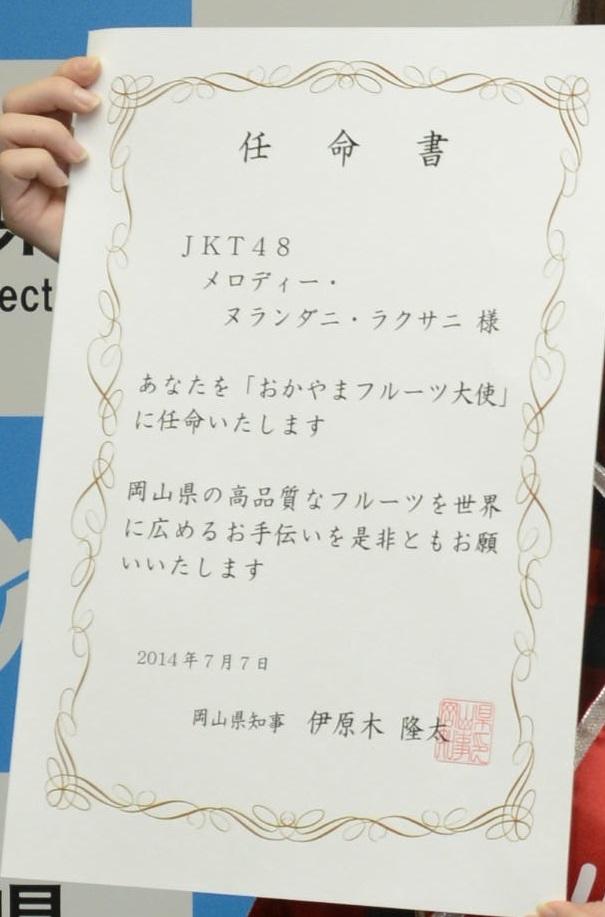 任命書
JKT48
メロディー・
ヌランダニ・ラクサニ 様
あなたを「おかやまフルーツ大使」
に任命いたします
岡山県の高品質なフルーツを世界
に広めるお手伝いを是非ともお願
いいたします
2014年7月7日
岡山県知事 伊原木 隆太
岡山県
知事印
ect
県